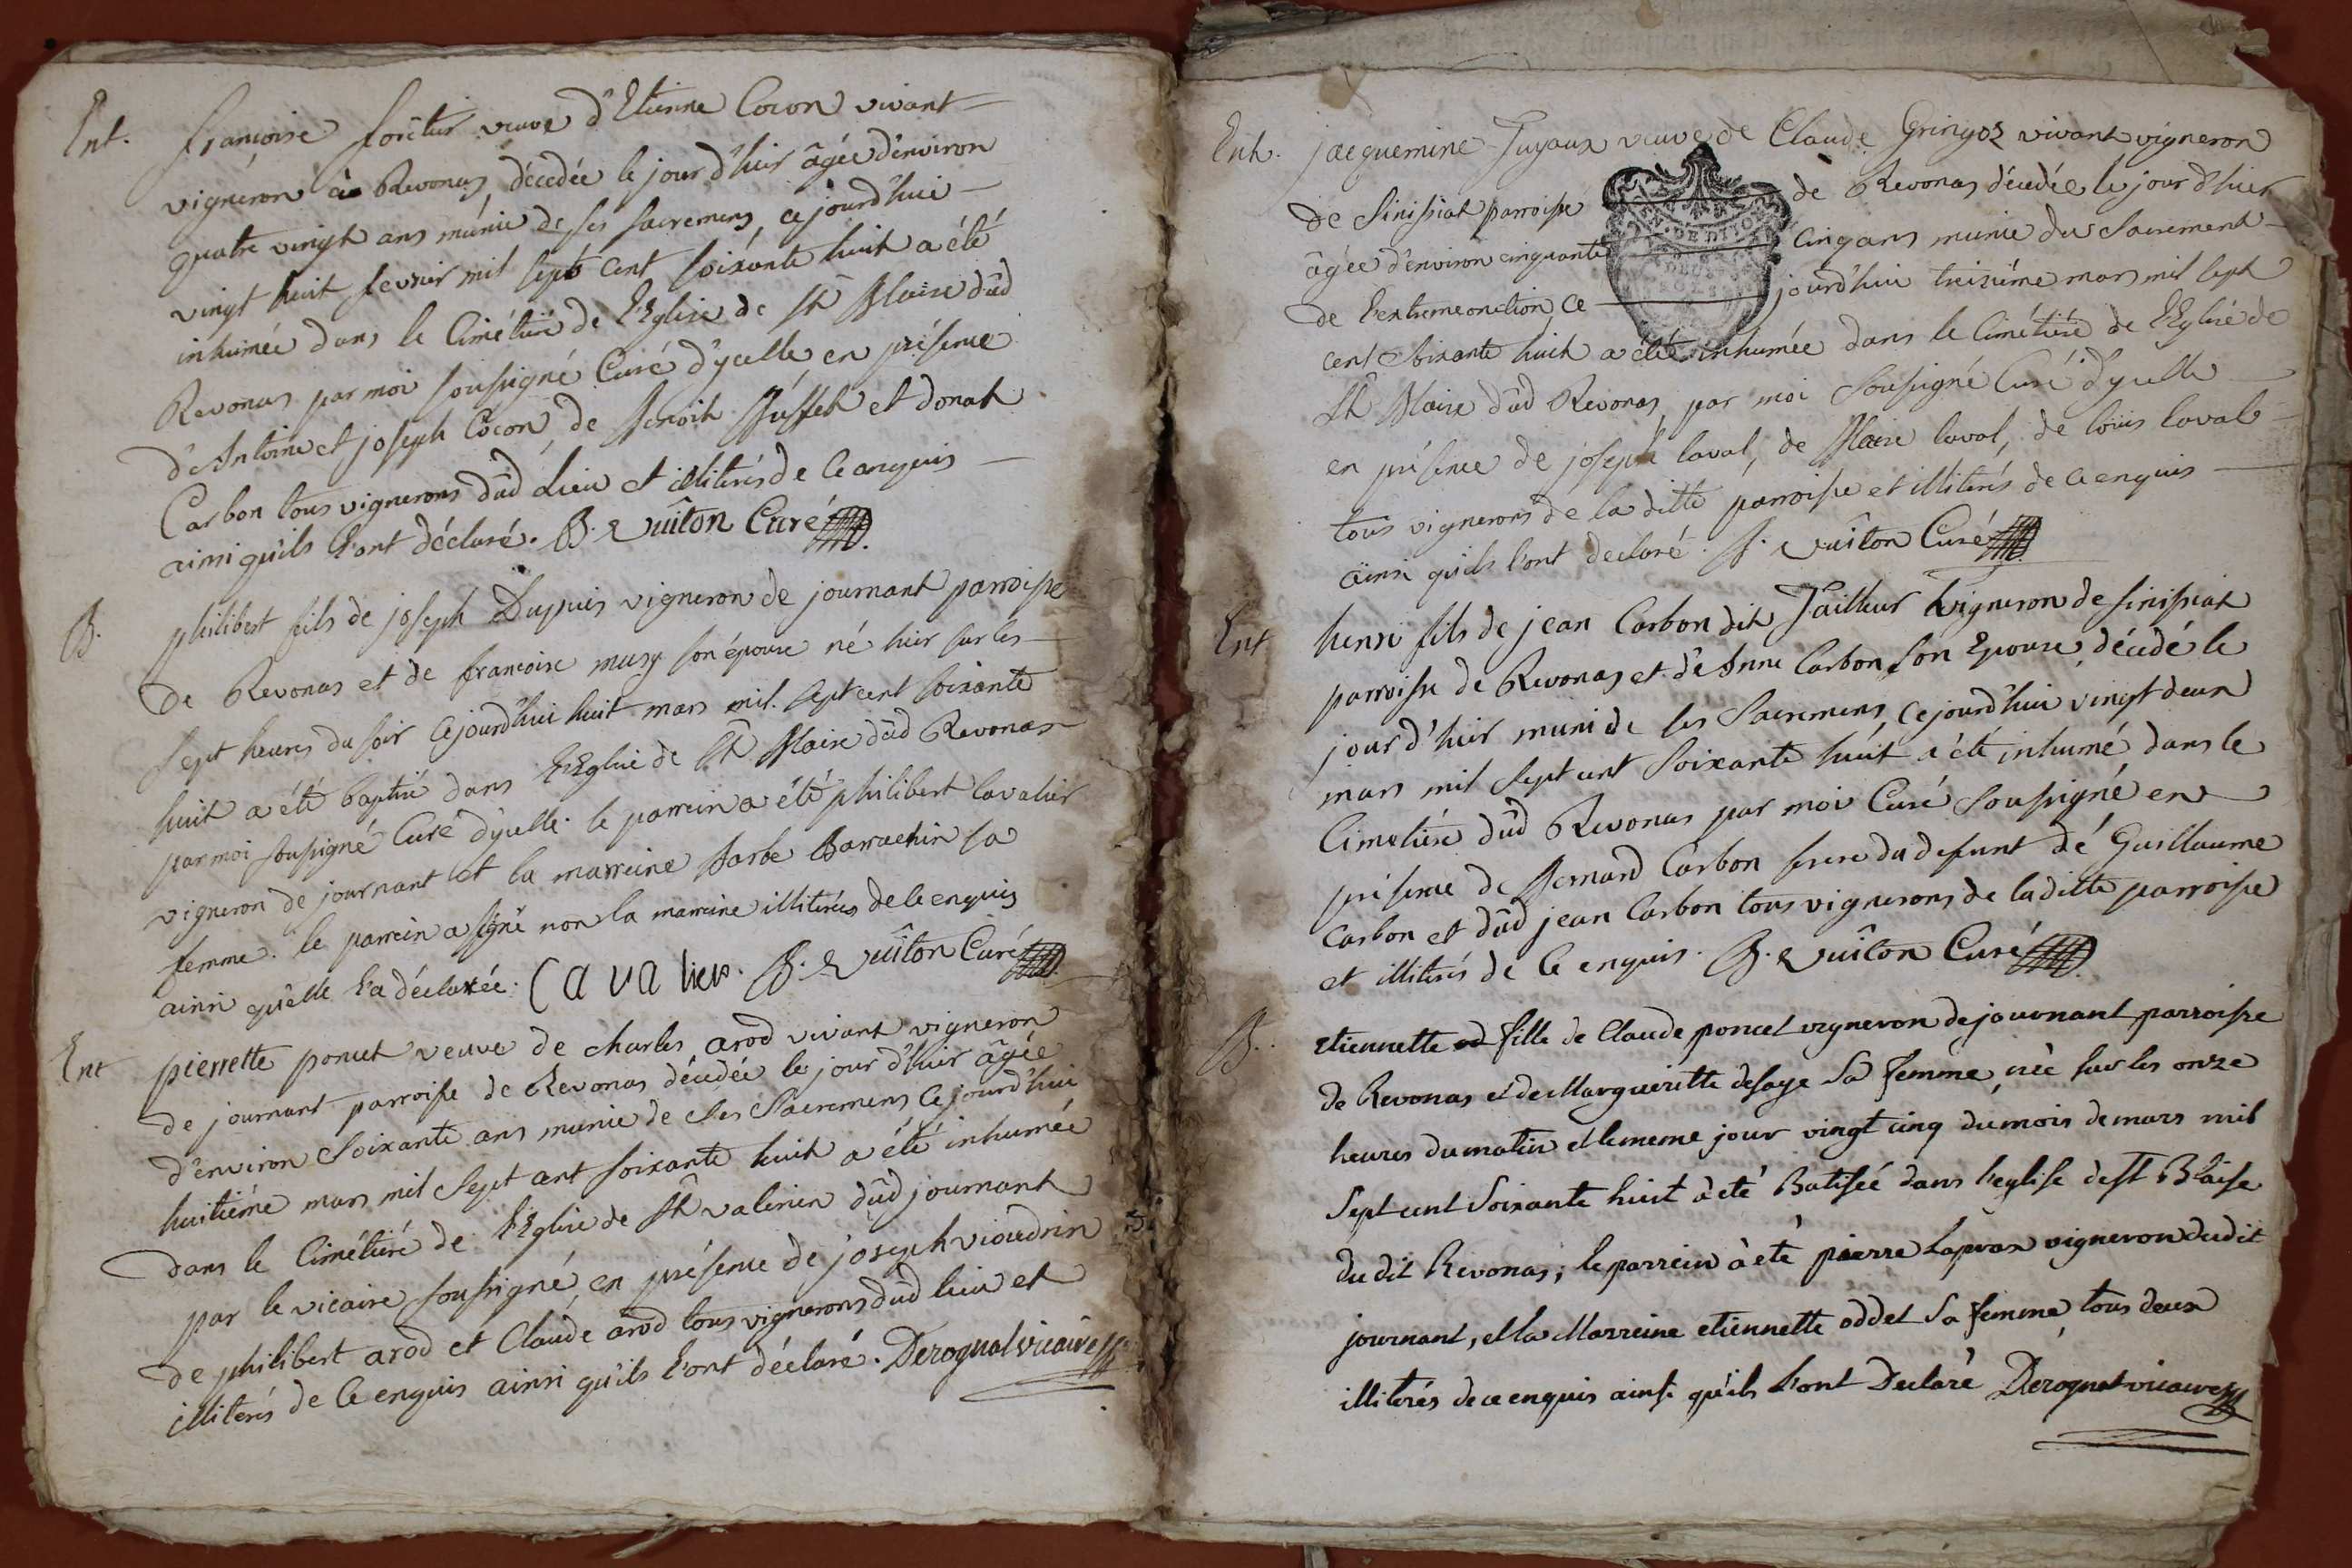 Ent. françoise forêtier veuve d'Etienne Cocon vivant
vigneron à Revonas, décédée le jour d'hier âgée d'environ
quatre vingt ans munie de ses sacremens, cejourd'hui
vingt huit fevrier mil sept cent soixante huit a été
inhumée dans le Cimétière de l'Eglise de St Blaise dûd
Revonas par moi soussigné Curé d'ycelle, en présence
d'Antoine et joseph Cocon, de Benoit Buffet et donat
Carbon tous vignerons dûd Lieu et illiterés de ce enquis
ainsi qu'ils l'ont déclaré. B. Vuîton Curé
B. philibert fils de joseph Dupuis vigneron de journant parroisse
de Revonas et de francoise musy son épouse né hier sur les
sept heures du soir cejourd'hui huit mars mil sept cent soixante
huit a été baptisé dans l'Eglise de St Blaise dûd Revonas
par moi soussigné Curé d'ycelle. le parrein a été philibert Cavalier
vigneron de journant et la marreine Barbe Barrachin sa
femme. le parrein a signé non la marreine illiterée de ce enquis
ainsi qu'elle l'a déclarée. Cavalier. B. Vuîton Curé
Ent pierrette poncet veuve de charles arod vivant vigneron
de journant parroisse de Revonas décédée le jour d'hier âgée
d'environ soixante ans munie de ses Sacremens cejourd'hui
huitième mars mil sept cent soixante huit a été inhumée
dans le Cimétière de l'Eglise de St valerien dûd journant
par le vicaire soussigné, en présence de joseph vioudrin
de philibert arod et Claude arod tous vignerons dûd lieu et
illiterés de ce enquis ainsi qu'ils l'ont déclaré. Derognat vicaire
Ent. jacquemine Tuyaux veuve de Claude Gringoz vivant vigneron
de Sinissiat parroisse de Revonas décédée le jour d'hier
âgée d'environ cinquante cinq ans munie du Sacrement
de l'extremeonction, ce jourd'hui treizième mars mil sept
cent soixante huit a été inhumée dans le Cimétière de l'Eglise de
St Blaise dûd Revonas par moi soussigné Curé d'ycelle
en présence de joseph laval, de Blaise laval, de loüis laval
tous vignerons de la ditte parroisse et illiterés de ce enquis
ainsi qu'ils l'ont declaré. B. Vuîton Curé
Ent henri fils de jean Carbon dit Tailleur vigneron de sinissiat
parroisse de Revonas et d'Anne Carbon son Epouse, décédé le
jour d'hier muni de ses Sacremens, cejourd'hui vingt deux
mars mil sept cent soixante huit a été inhumé dans le
Cimetière dûd Revonas par moi Curé soussigné en
présence de Bernard Carbon frere du defunt de Guillaume
Carbon et dûd jean Carbon tous vignerons de laditte parroisse
et illiterés de ce enquis. B. Vuîton Curé
B. etiennette fille de Claude poncet vigneron de journant parroisse
de Revonas et de Marguéritte desaye sa femme, née sur les onze
heures du matin et lememe jour vingt cinq du mois de mars mil
sept cent soixante huit à été Batisée dans l'eglise de St Blaise
du dit Revonas; le parrein à eté pierre Lapras vigneron dudit
journant, et la Marreine etiennette oddet sa femme, tous deux
illiterés de ce enquis ainsi qu'ils l'ont Declaré Derognat vicaire